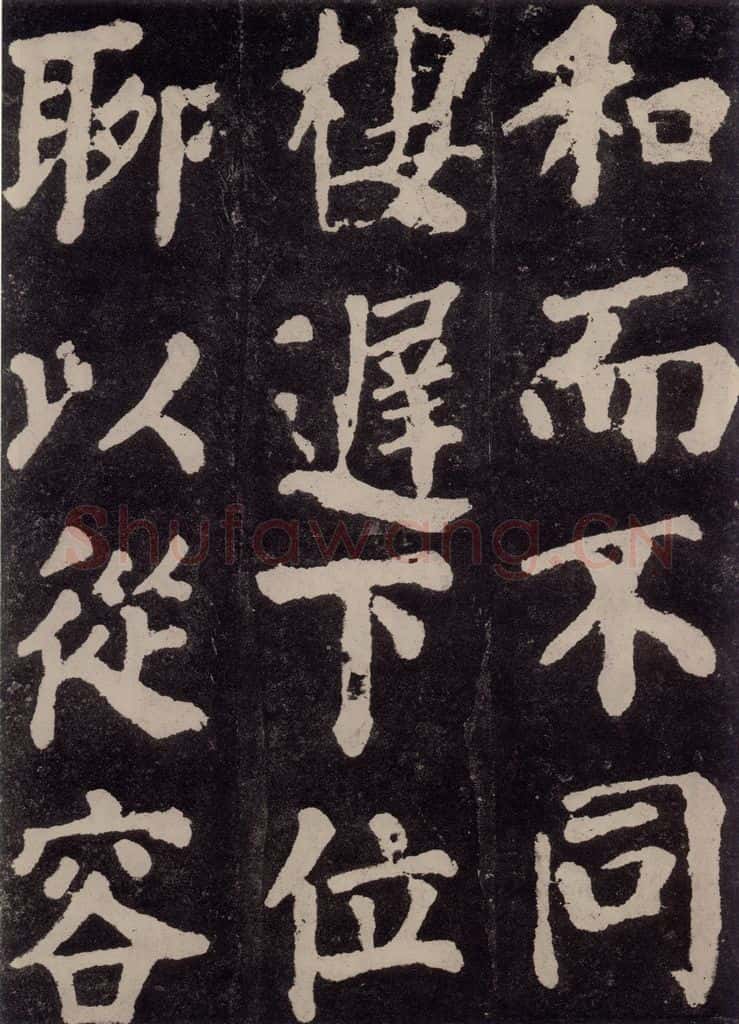 和而不同
棲遲下位
聊以從容
Shufawang.CN